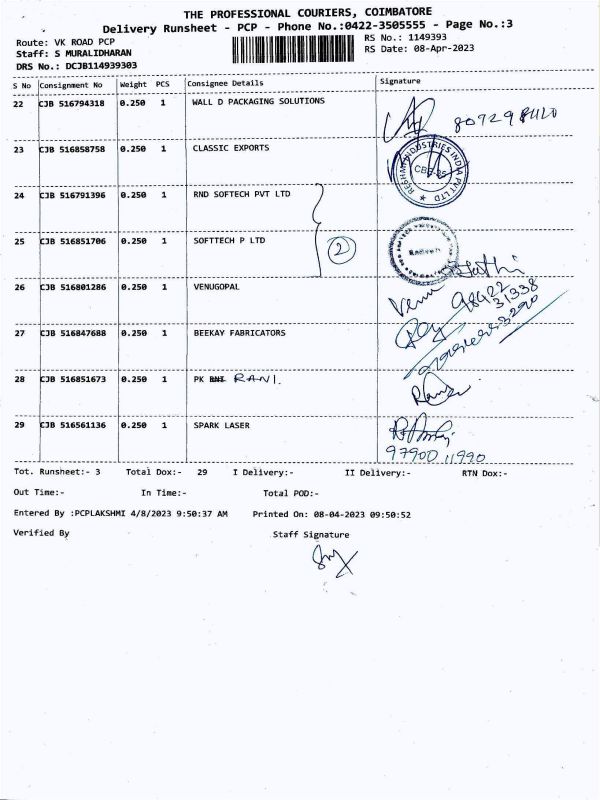 THE PROFESSIONAL COURIERS, COIMBATORE
Delivery Runsheet - PCP - Phone No.:0422-3505555 - Page No.:3
Route: VK ROAD PCP RS No.: 1149393
Staff: S MURALIDHARAN RS Date: 08-Apr-2023
DRS No.: DCJB114939303
S No Consignment No Weight PCS Consignee Details Signature
22 CJB 516794318 0.250 1 WALL D PACKAGING SOLUTIONS
23 CJB 516858758 0.250 1 CLASSIC EXPORTS
RESHMA INDUSTRIES INDIA PVT LTD
CBE-35
24 CJB 516791396 0.250 1 RND SOFTECH PVT LTD
25 CJB 516851706 0.250 1 SOFTTECH P LTD 2
26 CJB 516801286 0.250 1 VENUGOPAL Venu 98422
31338
27 CJB 516847688 0.250 1 BEEKAY FABRICATORS
28 CJB 516851673 0.250 1 PK RANI.
29 CJB 516561136 0.250 1 SPARK LASER
97900 11990
Tot. Runsheet:- 3 Total Dox:- 29 I Delivery:- II Delivery:- RTN Dox:-
Out Time:- In Time:- Total POD:-
Entered By :PCPLAKSHMI 4/8/2023 9:50:37 AM Printed On: 08-04-2023 09:50:52
Verified By Staff Signature